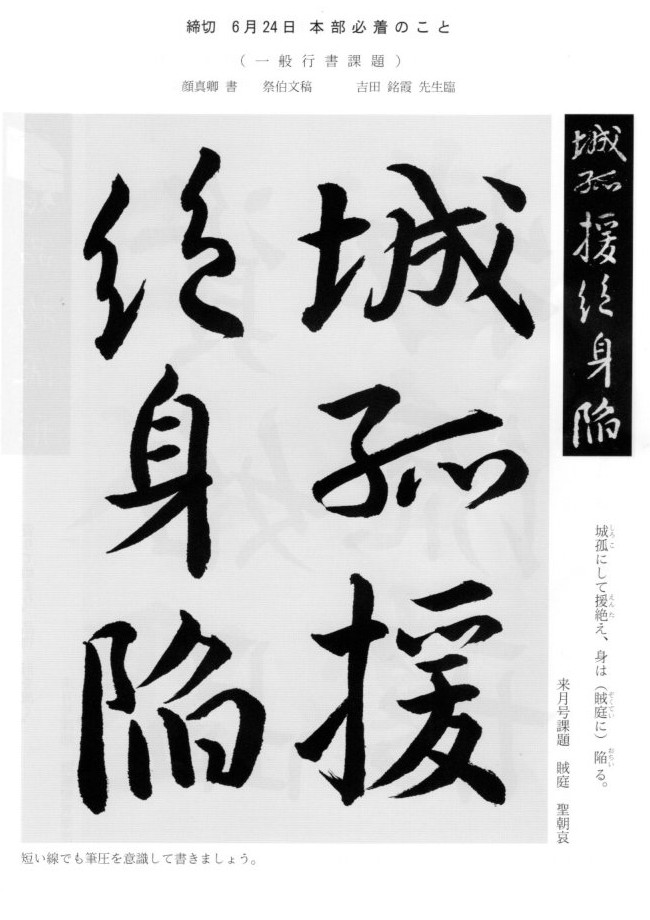 締切 6月24日 本部必着のこと
（一般行書課題）
顔真卿 書 祭伯文稿 吉田 銘霞 先生臨
城孤援絶身陥
城孤援
絶身陥
城孤にして援絶え、身は（賊庭に）陥る。
しろこ えんた ぞくてい おちい
来月号課題 賊庭 聖朝哀
短い線でも筆圧を意識して書きましょう。